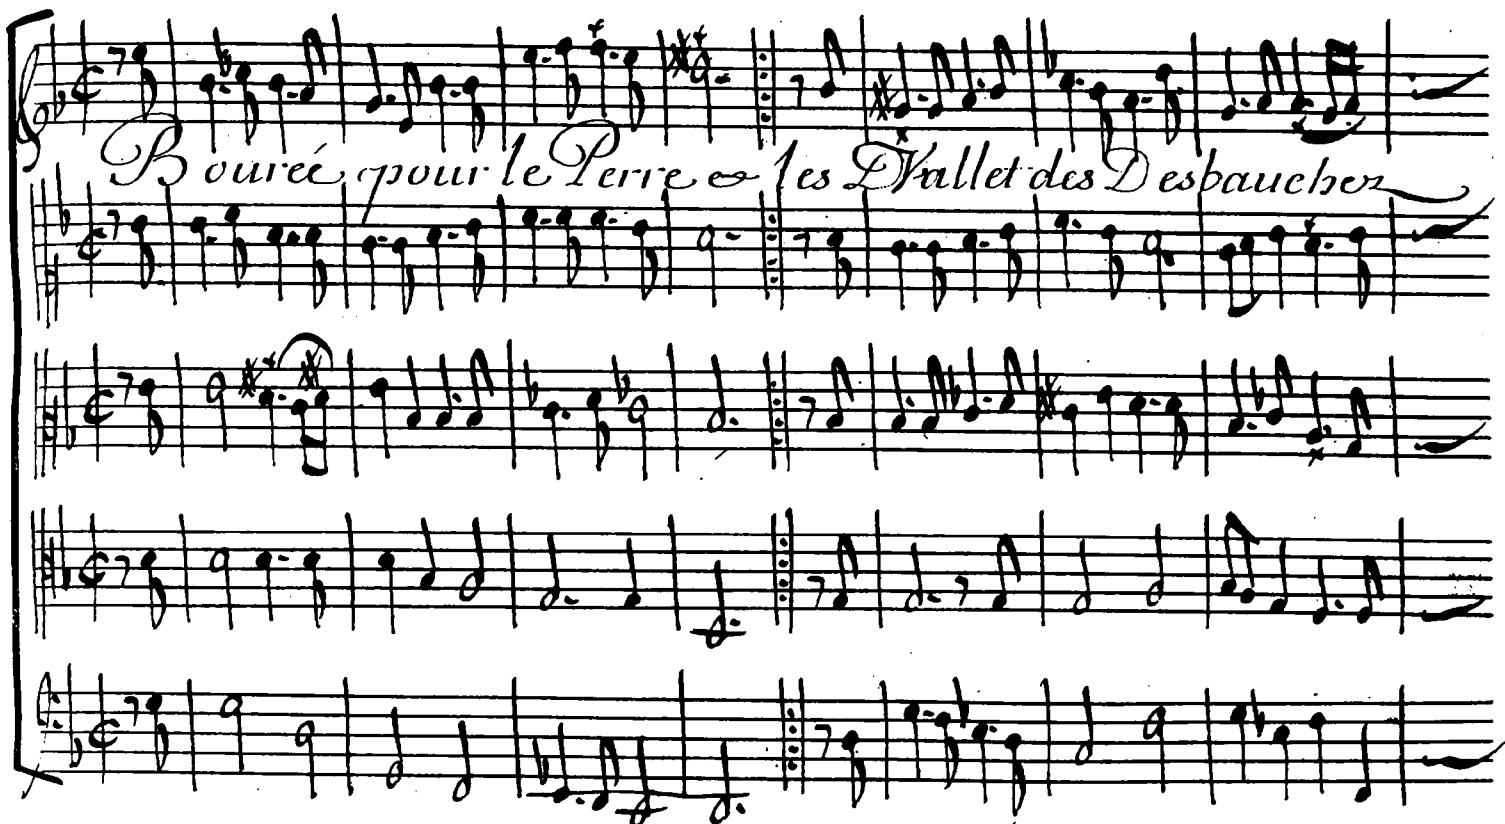 Boureé pour le Perre & les Vallet des Desbauchez